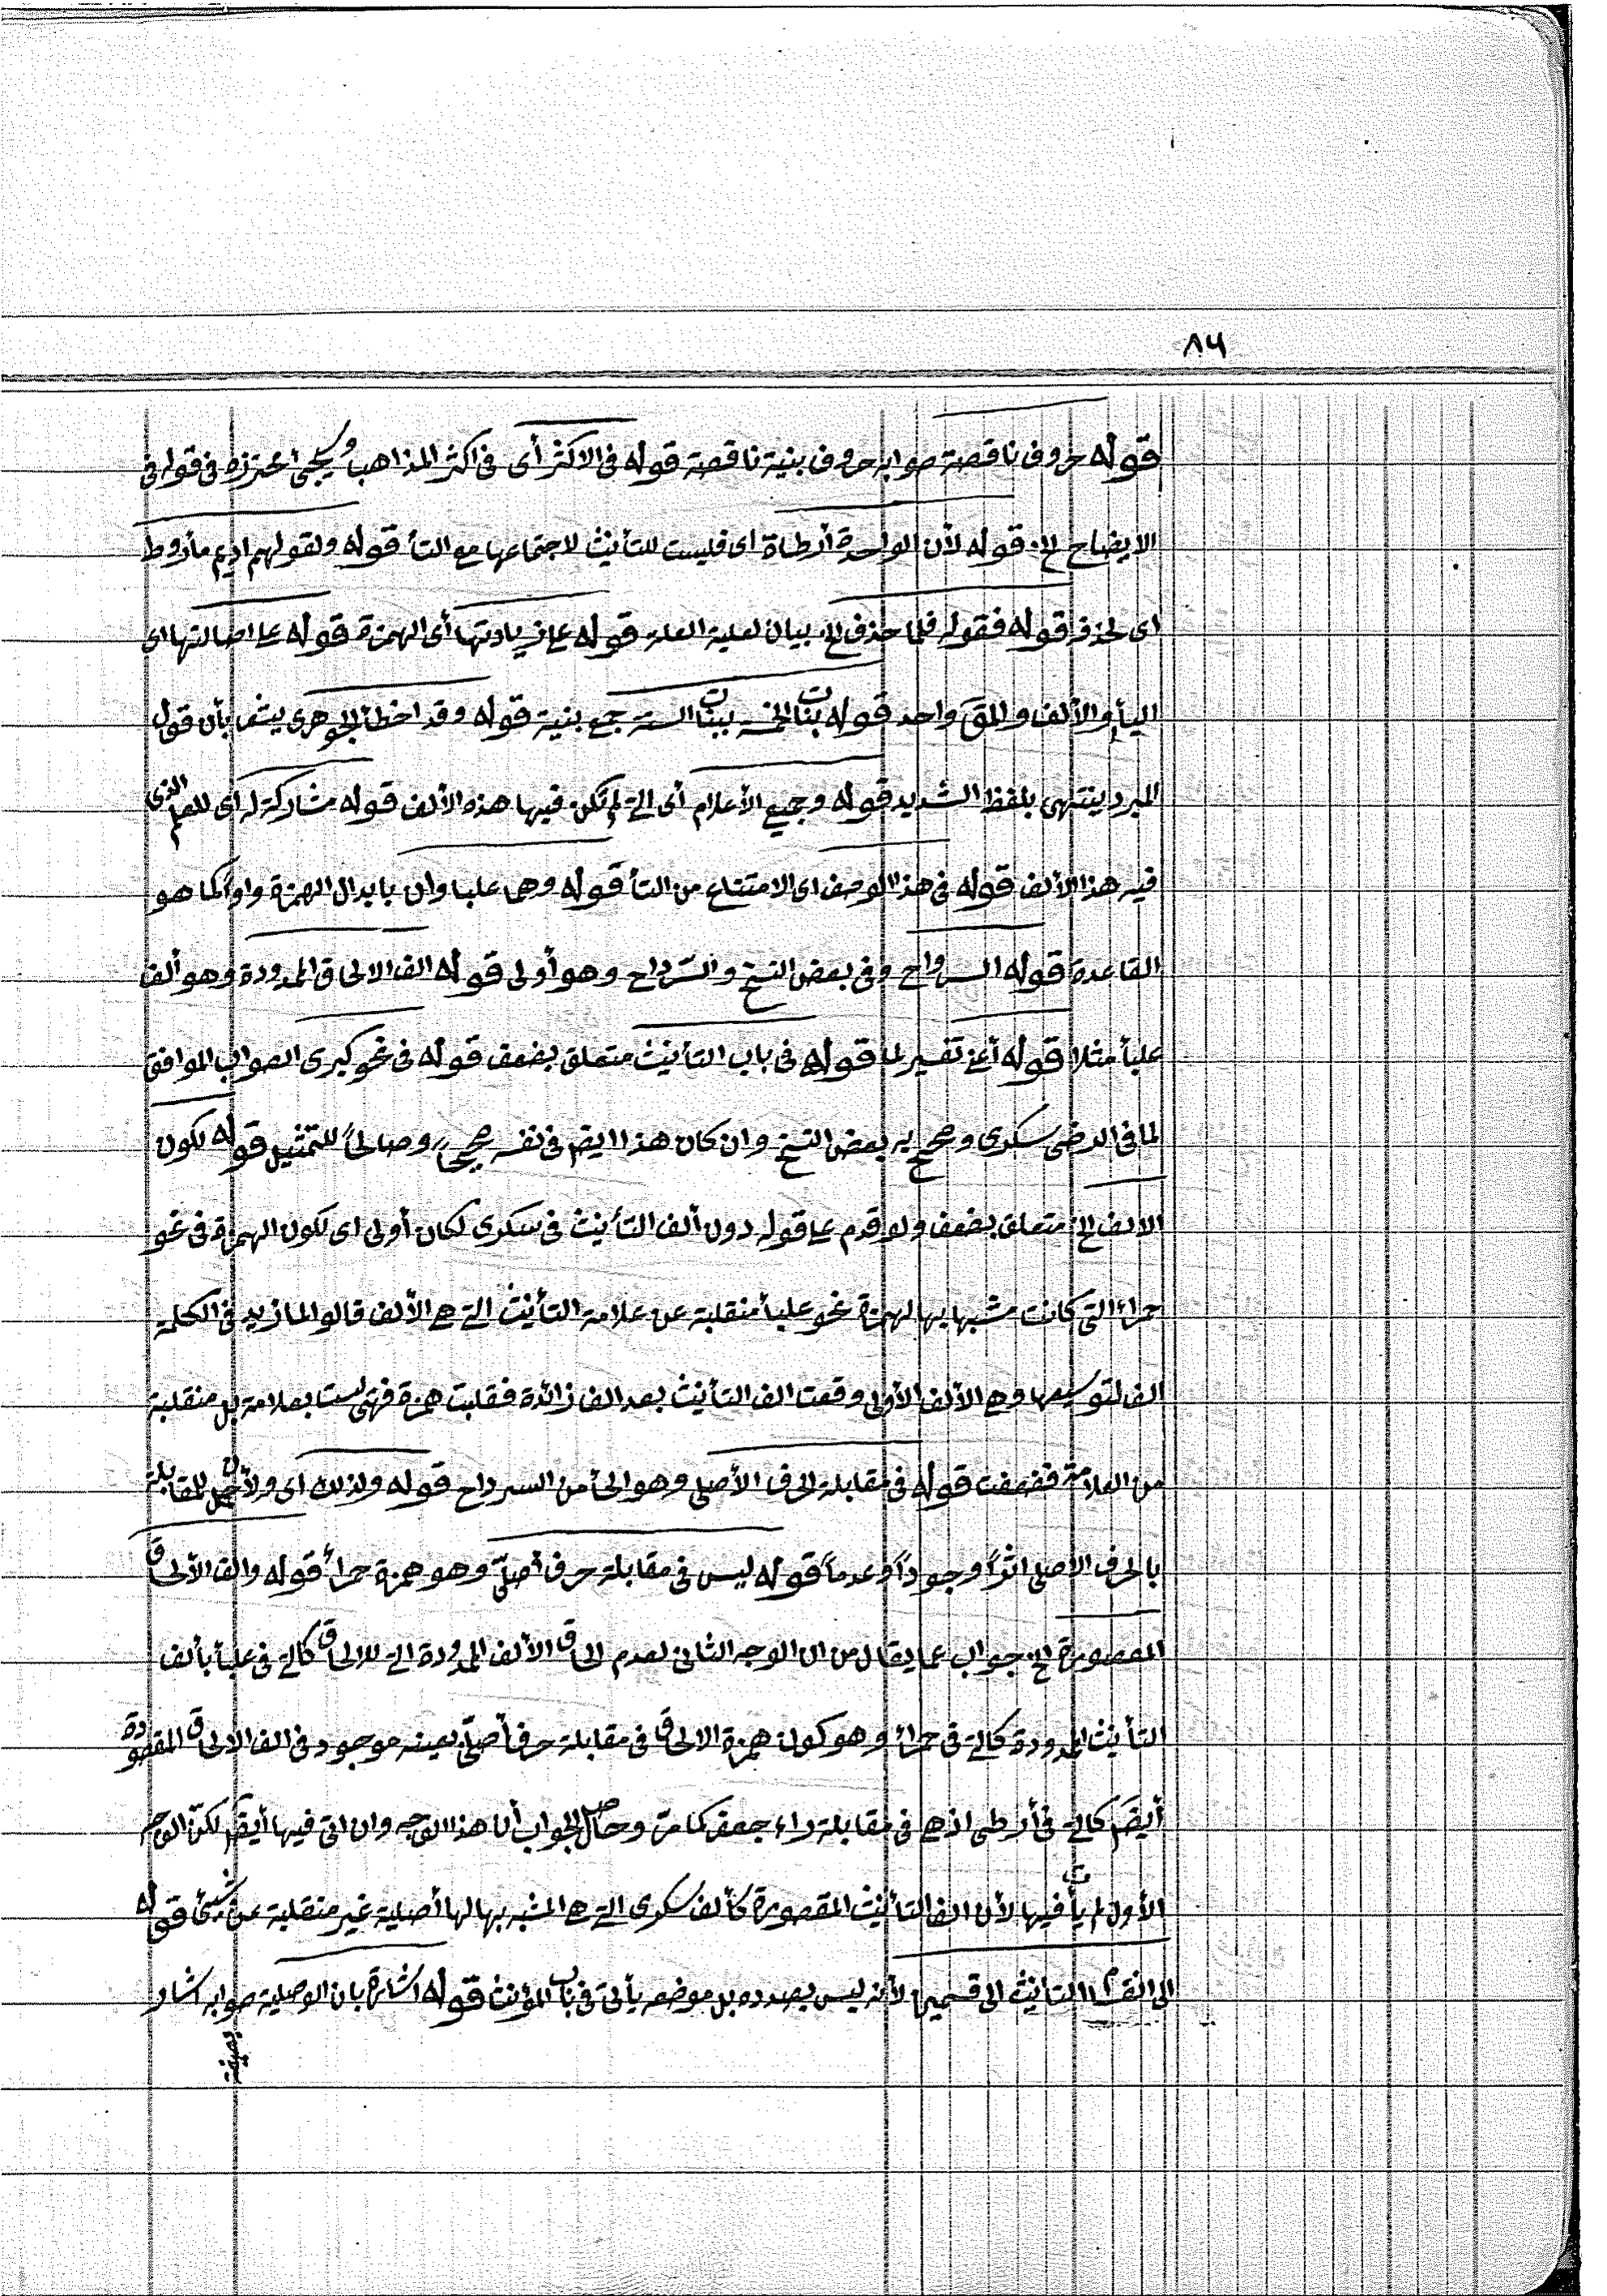 ٨٦
قوله حروف ناقصة صوابه حروف بنية ناقصة قوله فى الاكثر أى فى اكثر المذاهب ويجئ محترزه فى قوله فى
الايضاح الخ قوله لأن الواحدة أرطاة اى فليست للتأنيث لاجتماعها مع التأ قوله ولقولهم اديم مأروط
اى لحذف قوله فقوله فلما حذف الخ بيان لعلية العلة قوله على زيادتها أى الهمزة قوله على اصالتها اى
اليأ والألف والمق واحد قوله بنات الخمسة ببنات الستة جمع بنية قوله وقد اخطأ الجوهرى بأن قول
المبرد ينتهى بلفظ الشديد قوله وجميع الأعلام أى التى لم تكن فيها هذه الألف قوله مشاركة له اى للعلم الذى
فيه هذا الألف قوله فى هذا الوصف اى الامتناع من التأ قوله وهى علباوان بابدال الهمزة واواً كما هو
القاعدة قوله السرواح وفى بعض النسخ والسرداح وهو أولى قوله الف الالحاق الممدودة وهو ألف
علبأ مثلا قوله أعنى تفسير لما قوله فى باب التأنيث متعلق بضعف قوله فى نحو كبرى الصواب الموافق
لما فى الرضى سكرى وصحح به بعض النسخ وان كان هذا ايضم فى نفسه صحيحاً وصالحاً للتمثيل قوله لكون
الالف الخ متعلق بضعف ولو قدم على قوله دون ألف التأنيث فى سكرى لكان أولى اى لكون الهمزة فى نحو
حمراء التى كانت مشبها بها لهمزة نحو علبأ منقلبة عن علامة التأنيث التى هى الألف قالوا لما زيد فى الكلمة
الف لتوسيعها وهى الألف الأولى وقعت الف التأنيث بعد الف زائدة فقلبت همزة فهى ليست بعلامة بل منقلبة
من العلامة فضعفت قوله فى مقابلة الحرف الأصلى وهو الحأ من السرداح قوله ولذلك اى ولأجل للمقابلة
بالحرف الأصلى اثراً وجوداً وعدماً قوله ليس فى مقابلة حرف أصلىّ وهو همزة حمرأ قوله والف الألحاق
المقصورة الخ جواب عما يقال من ان الوجه الثانى لعدم الحاق الألف الممدودة التى للالحاق كالتى فى علبأ بألف
التأنيث الممدودة كالتى فى حمرأ وهو كون همزة الالحاق فى مقابلة حرف أصلىّ بعينه موجود فى الف الالحاق المقصورة
أيضم كالتى فى أرطى اذ هى فى مقابلة راء جعفر كما مرّ وحاصل الجواب أن هذا الوجه وان اتى فيها أيضم لكنّ الوجه
الأول لم يأت فيها لأن الف التأنيث المقصورة كألف سكرى التى هى المشبه بها لها أصلية غير منقلبة عن شئ قوله
الى انقسام التأنيث الى قسميها لأنه ليس بصدده بل موضعه يأتى فى باب المؤنث قوله اشارة بان الوصلية صوابه اشار